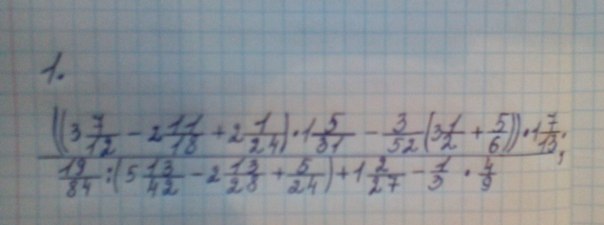 1.
((3 7/12 - 2 11/18 + 2 1/24) · 1 5/31 - 3/52 (3 1/2 + 5/6)) · 1 7/13 ;
19/84 : (5 13/42 - 2 13/28 + 5/24) + 1 2/27 - 1/3 · 4/9